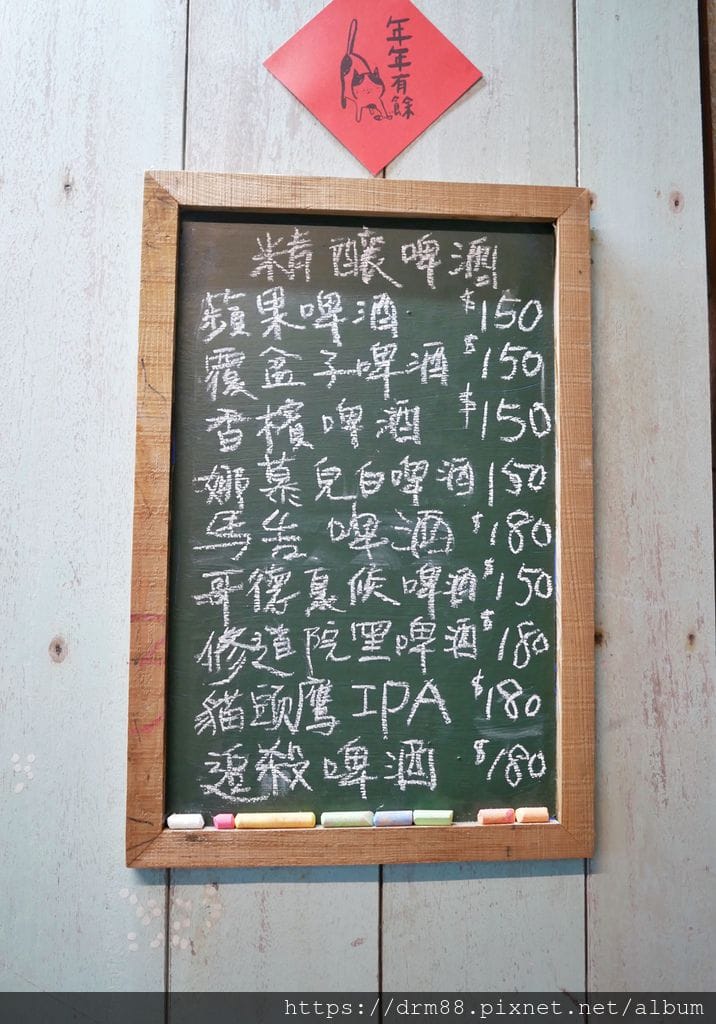 年年有餘
精釀啤酒
蘋果啤酒 $150
覆盆子啤酒 $150
香檳啤酒 $150
娜慕兒白啤酒 150
馬告 啤酒 $180
哥德夏候啤酒 $150
修道院黑啤酒 $180
貓頭鷹 IPA $180
遜殺啤酒 $180
https://drm88.pixnet.net/album